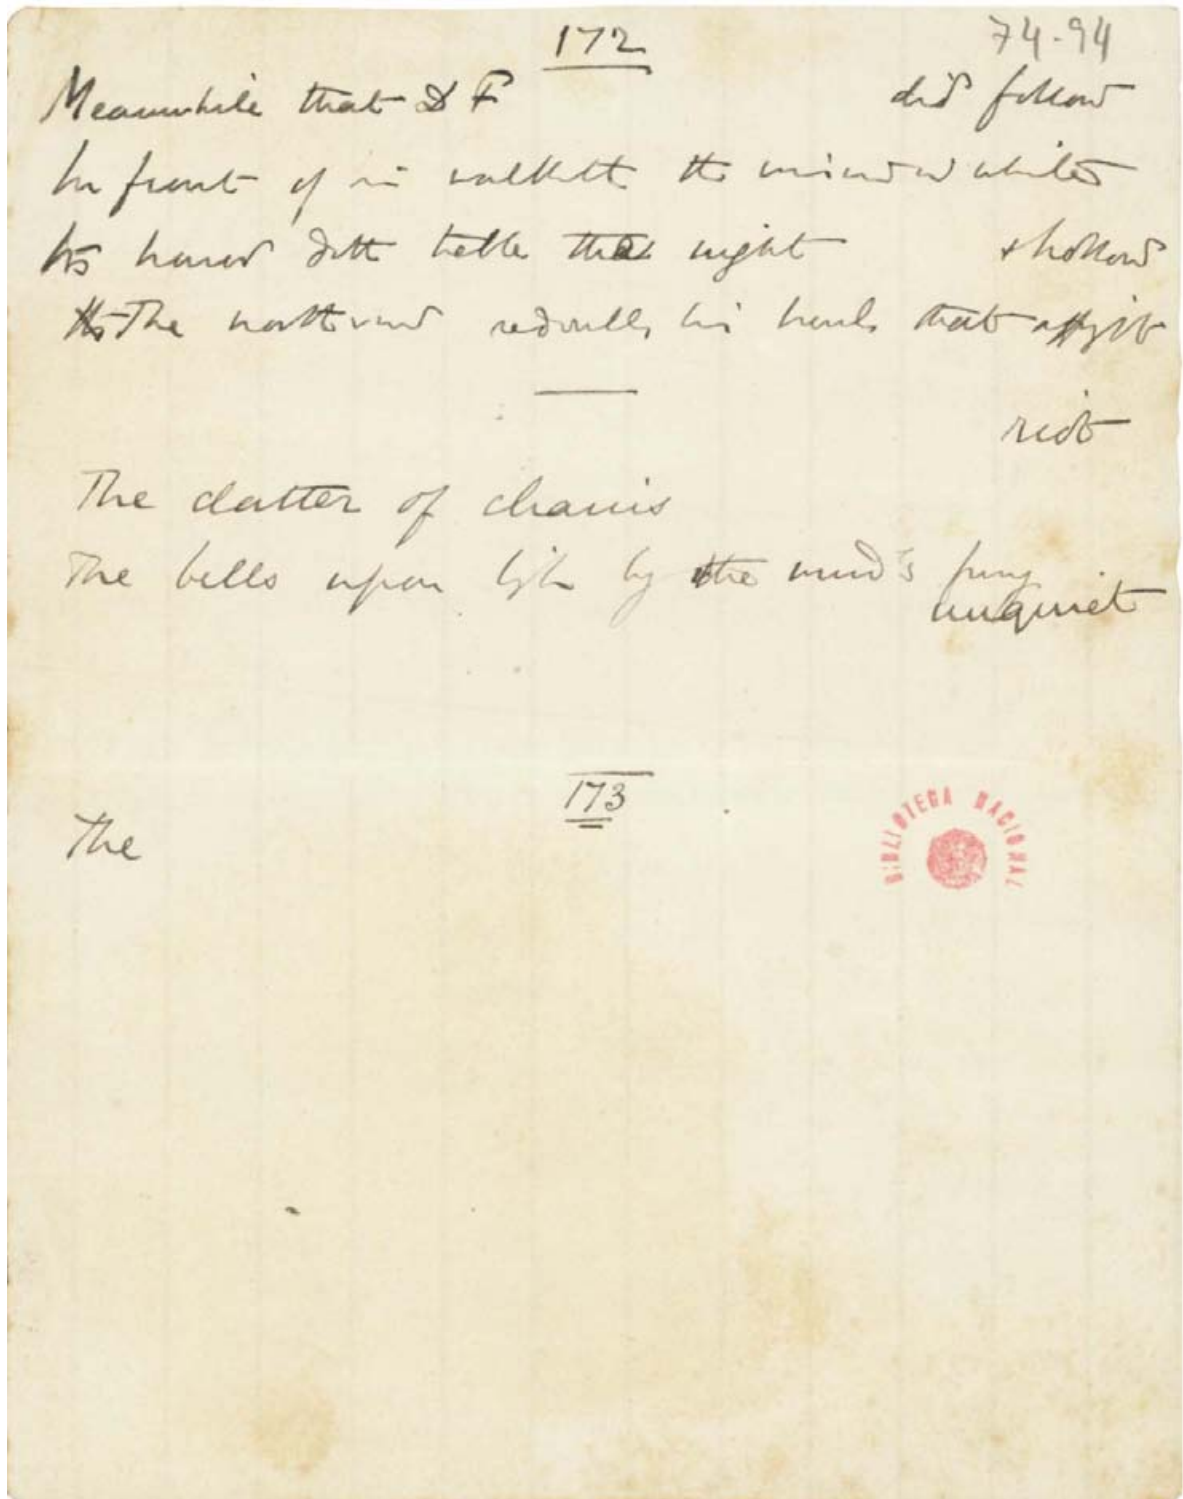 172
74-94
Meanwhile that D F did follow
In front of in walketh the window white
His horror doth the night & hollow
The northwind redoubles his howls that affright
riot
The clatter of chains
The bells upon high by the wind's fury
unquiet
173
The
BIBLIOTECA NACIONAL